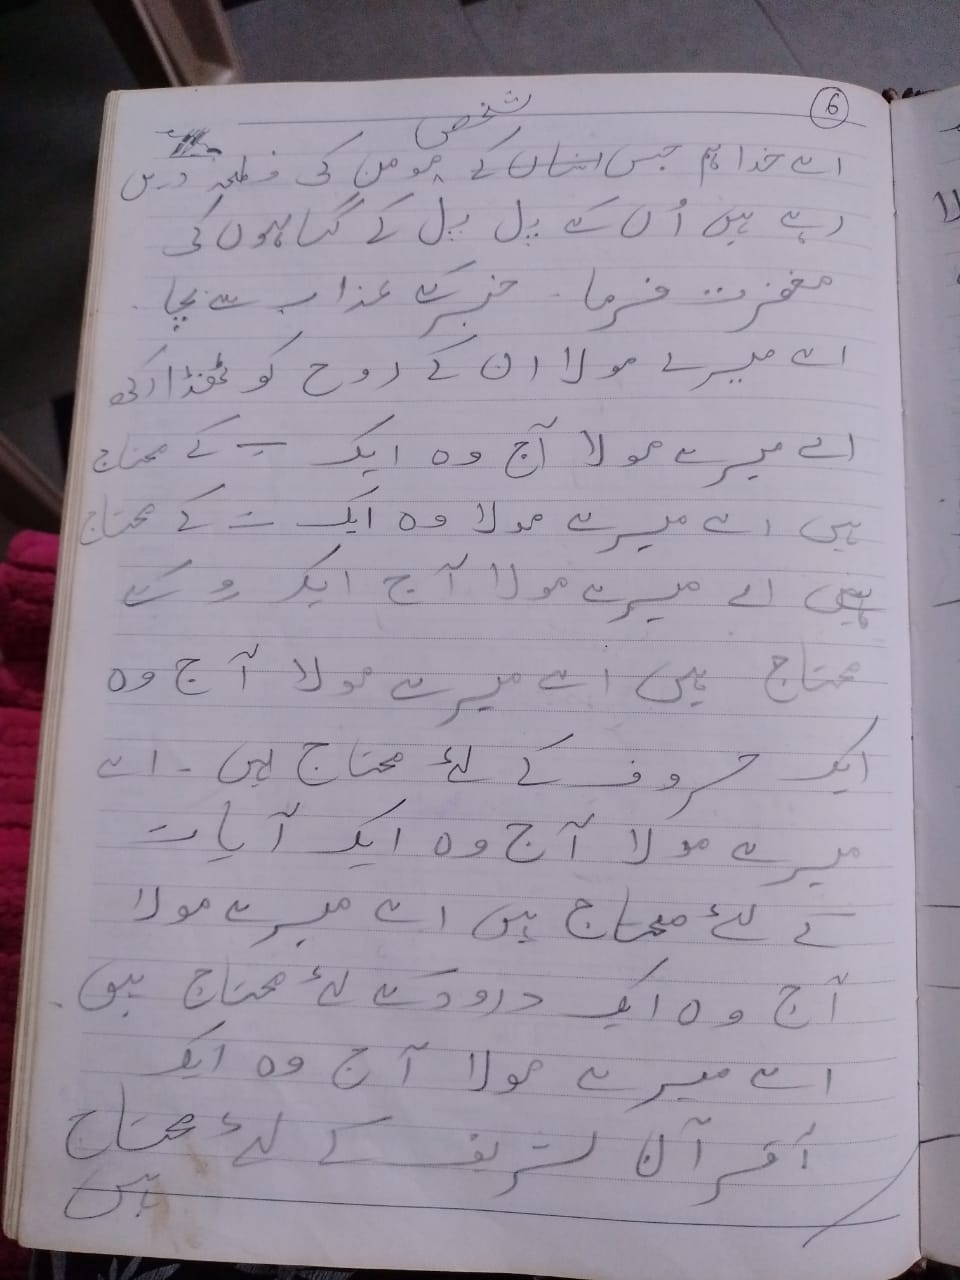 6
شخص
اے خدا ہم جس انسان کے مومن کی
رہے ہیں اُن کے پل پل کے گناہوں کی
مغفرت فرما۔ کے عذاب سے بچا۔
اے میرے مولا ان کے روح کو ٹھنڈا رکی
اے میرے مولا آج وہ ایک بے کے محتاج
ہیں اے میرے مولا وہ ایک تے کے محتاج
ہیں اے میرے مولا آج ایک کے
محتاج ہیں اے میرے مولا آج وہ
ایک حروف کے لئے محتاج ہیں۔ اے
میرے مولا آج وہ ایک آیات
کے لئے محتاج ہیں اے میرے مولا
آج وہ ایک درود کے لئے محتاج ہیں۔
اے میرے مولا آج وہ ایک
قرآن شریف کے لئے محتاج
ہیں